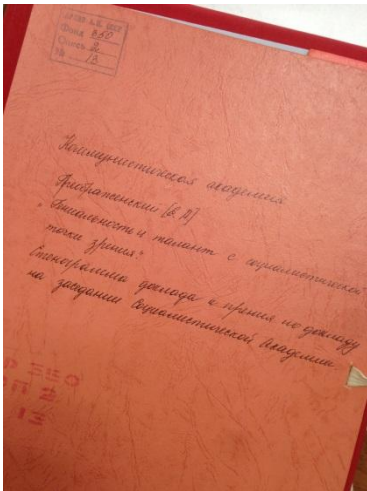 Фонд 350
Опись 2
№ 13
Коммунистическая академия
Преображенский [Е. А.]
"Гениальность и талант с социалистической
точки зрения."
Стенограмма доклада и прения по докладу
на заседании Социалистической Академии